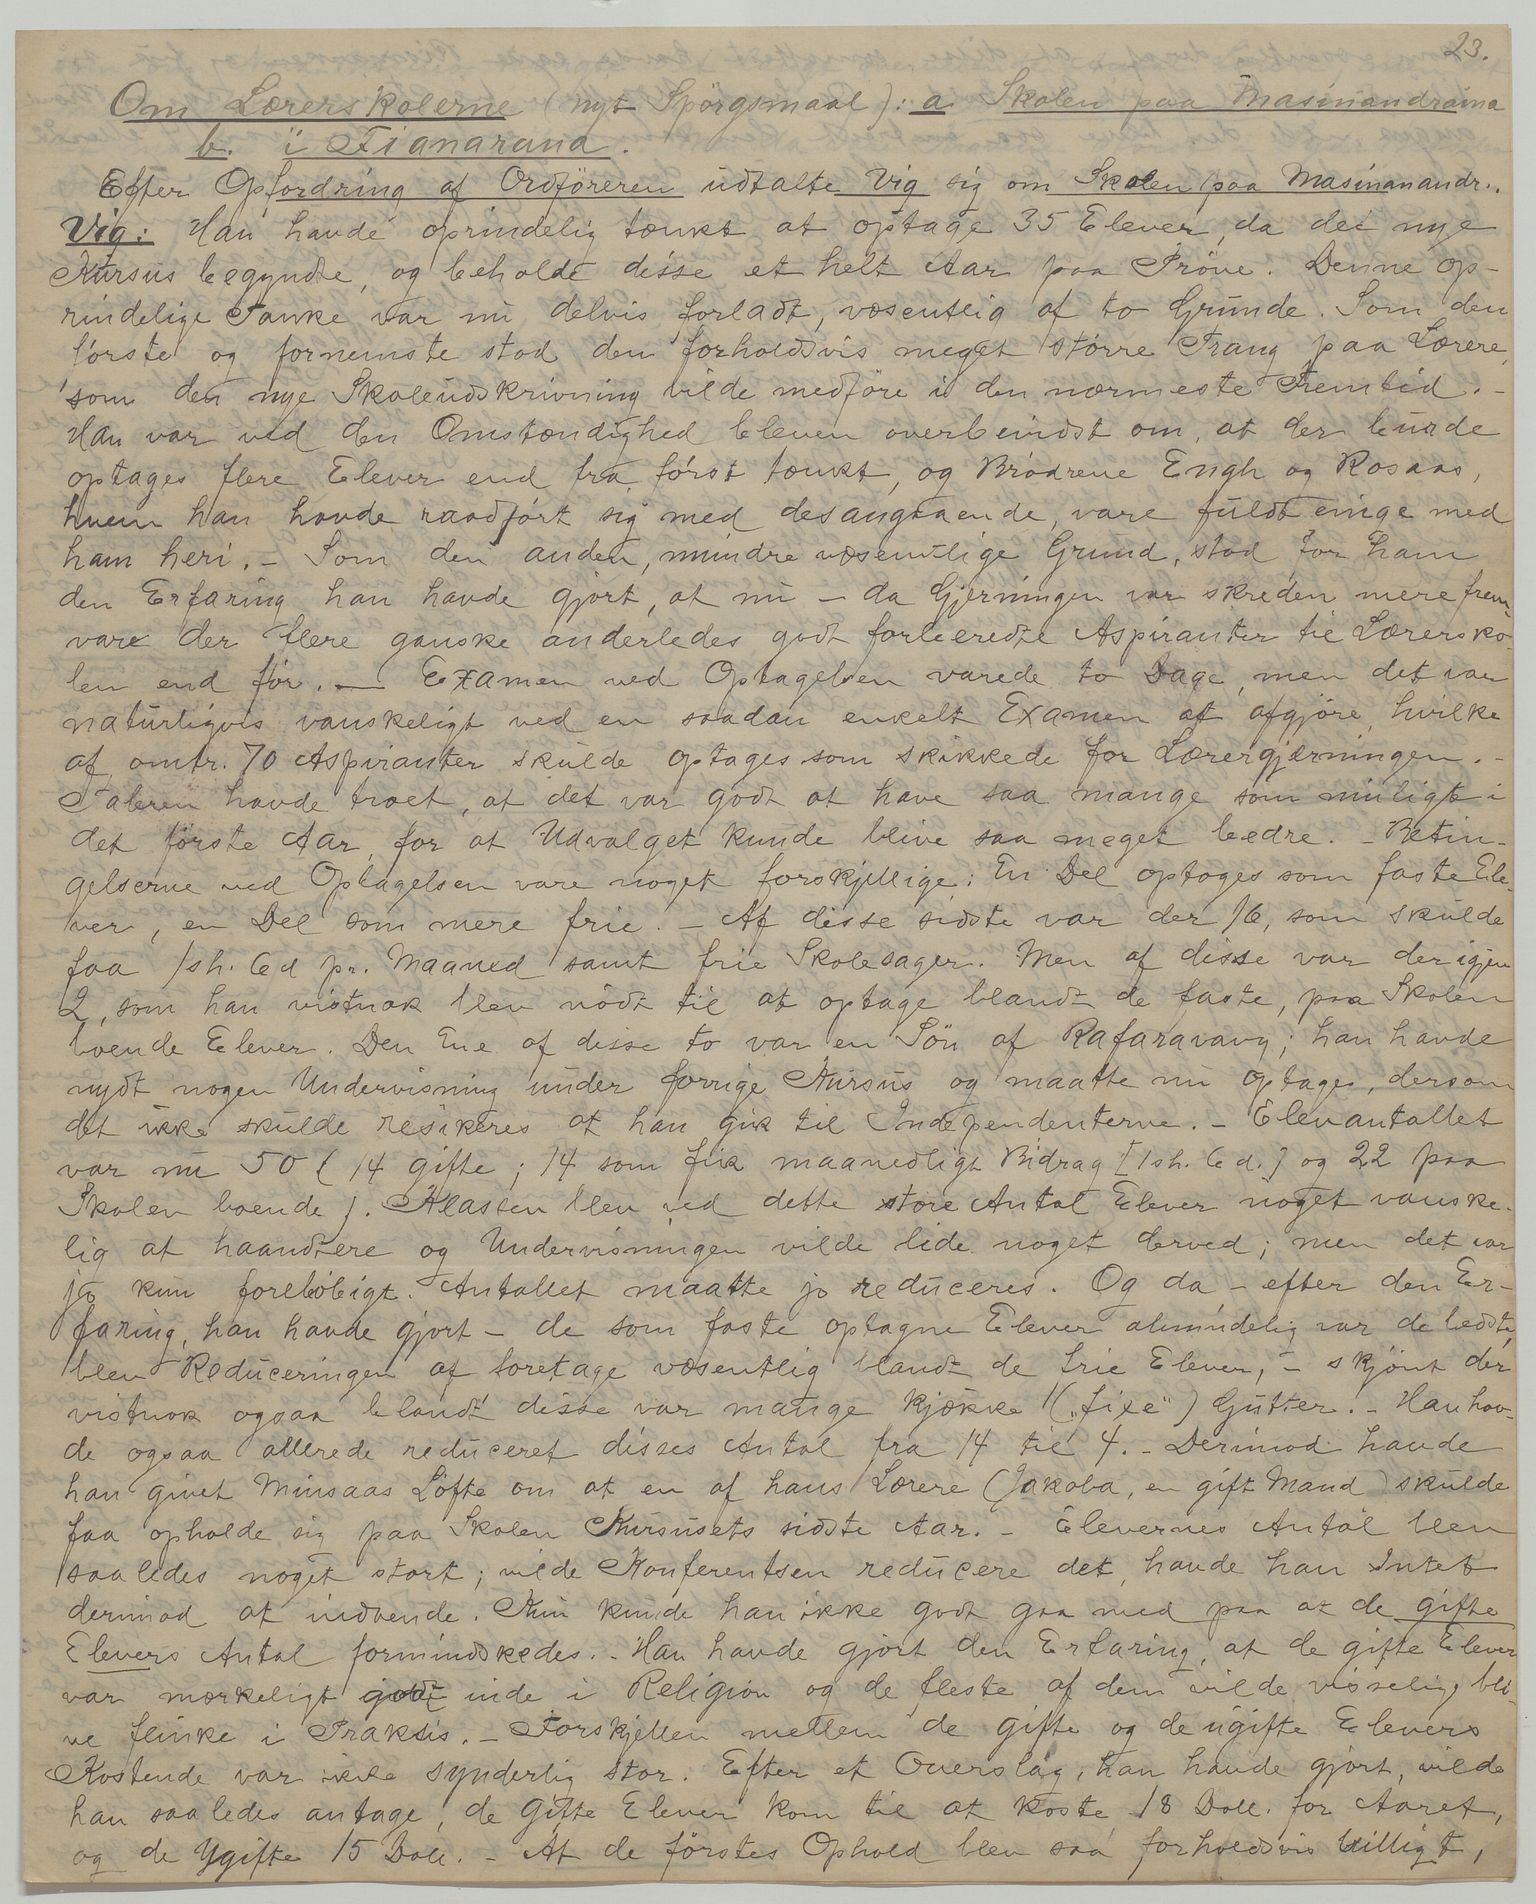 23.
Om Lærerskolerne (nyt Spörgsmaal): a Skolen paa Masinandraina
b. i Fianarana.
Efter Opfordring af Ordföreren udtalte Vig sig om Skolen paa Masinanandr..
Vig: Han havde oprindelig tænkt at optage 35 Elever, da det nye
Kursus begyndte, og beholde disse et helt Aar paa Pröve. Denne op-
rindelige Tanke var nu delvis forladt, væsentlig af to Grunde. Som den
förste og fornemste stod den forholdsvis meget större Trang paa Lærere,
som den nye Skoleudskrivning vilde medföre i den nærmeste Fremtid. -
Han var ved den Omstændighed bleven overbevidst om, at der burde
optages flere Elever end fra först tænkt, og Brödrene Engh og Rosaas,
hvem han havde raadfört sig med desangaaende, vare fuldt enige med
ham heri. - Som den anden, mindre væsentlige Grund, stod for ham
den Erfaring han havde gjort, at nu - da Gjerningen var skreden mere frem-
vare der flere ganske anderledes godt forberedte Aspiranter til Lærersko-
len end för. - Examen ved Optagelsen varede to Dage, men det var
naturligvis vanskeligt ved en saadan enkelt Examen at afgjöre, hvilke
af omtr. 70 Aspiranter skulde optages som skikkede for Lærergjærningen. -
Taleren havde troet, at det var godt at have saa mange som muligt i
det förste Aar, for at Udvalget kunde blive saa meget bedre. - Betin-
gelserne ved Optagelsen vare noget forskjellige: En Del optoges som faste Ele-
ver, en Del som mere frie. - Af disse sidste var der 16, som skulde
faa 1 sh. 6 d pr. Maaned samt frie Skolesager. Men af disse var der igjen
2, som han vistnok blev nödt til at optage blandt de faste, paa Skolen
boende Elever. Den Ene af disse to var en Sön af Rafaravavy; han havde
nydt nogen Undervisning under forrige Kursus og maatte nu optages, dersom
det ikke skulde resikeres at han gik til Independenterne. - Elevantallet
var nu 50 (14 gifte; 14 som fik maanedligt Bidrag [1 sh. 6 d.] og 22 paa
Skolen boende). Klassen blev ved dette store Antal Elever noget vanske-
lig at haandtere og Undervisningen vilde lide noget derved; men det var
jo kun forelöbigt. Antallet maatte jo reduceres. Og da - efter den Er-
faring, han havde gjort - de som faste optagne Elever almindelig var de bedste,
blev Reduceringen at foretage væsentlig blandt de frie Elever, - skjönt der
vistnok ogsaa blandt disse var mange kjække ("fixe") Gutter. - Han hav-
de ogsaa allerede reduceret disses Antal fra 14 til 4. - Derimod havde
han givet Minsaas Löfte om at en af hans Lærere (Jakoba, en gift Mand) skulde
faa opholde sig paa Skolen Kursusets sidste Aar. - Elevernes Antal blev
saaledes noget stort; vilde Konferentsen reducere det, havde han Intet
derimod at indvende. Kun kunde han ikke godt gaa med paa at de gifte
Elevers Antal formindskedes. - Han havde gjort den Erfaring, at de gifte Elever
var mærkeligt godt inde i Religion og de fleste af dem vilde visselig bli-
ve flinke i Praksis. - Forskjellen mellem de gifte og de ugifte Elevers
Kostende var ikke synderlig stor. Efter et Overslag, han havde gjort, vilde
han saaledes antage, de Gifte Elever kom til at koste 18 Doll. for Aaret,
og de Ugifte 15 Doll. - At de förstes Ophold blev saa forholdsvis billigt,